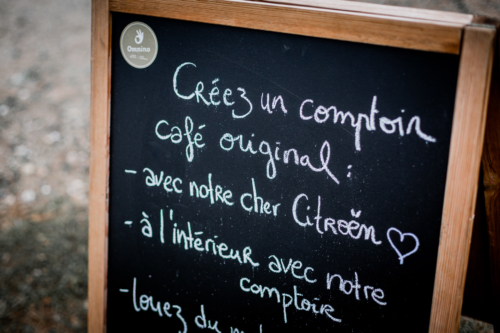 Ommina
Créez un comptoir
café original :
- avec notre cher Citroën ♡
- à l'intérieur avec notre
comptoire
- louez du